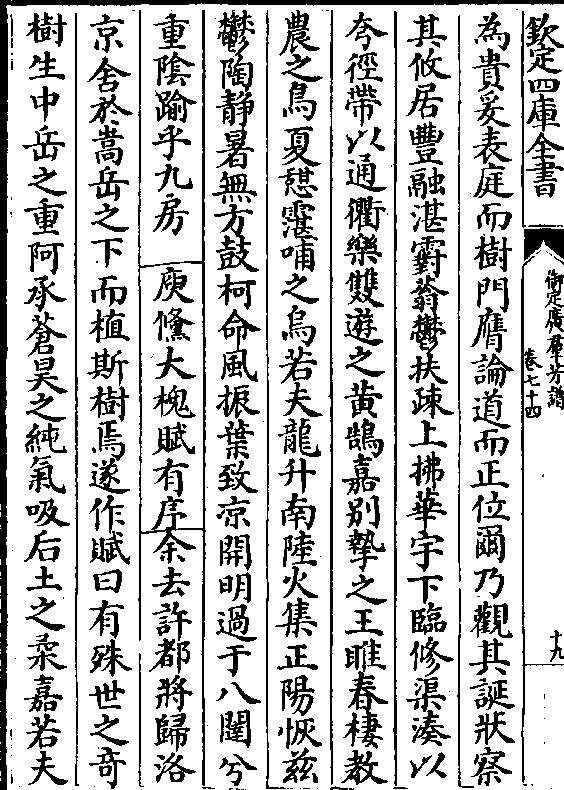 欽定四庫全書
御定廣羣芳譜
卷七十四
十九
為貴爰表庭而樹門膺論道而正位爾乃觀其誕狀察
其攸居豐融湛霨蓊鬱扶疎上拂華宇下臨修渠湊以
夸徑帶以通衢樂雙遊之黄鵠嘉别摯之王雎春棲教
農之鳥夏憇霮哺之烏若夫龍升南陸火集正陽恢兹
鬱陶静暑無方鼓柯命風振葉致凉開明過于八闥兮
重隂踰乎九房
庾儵大槐賦有序
余去許都將歸洛
京舍於嵩岳之下而植斯樹焉遂作賦曰有殊世之竒
樹生中岳之重阿承蒼昊之純氣吸后土之柔嘉若夫